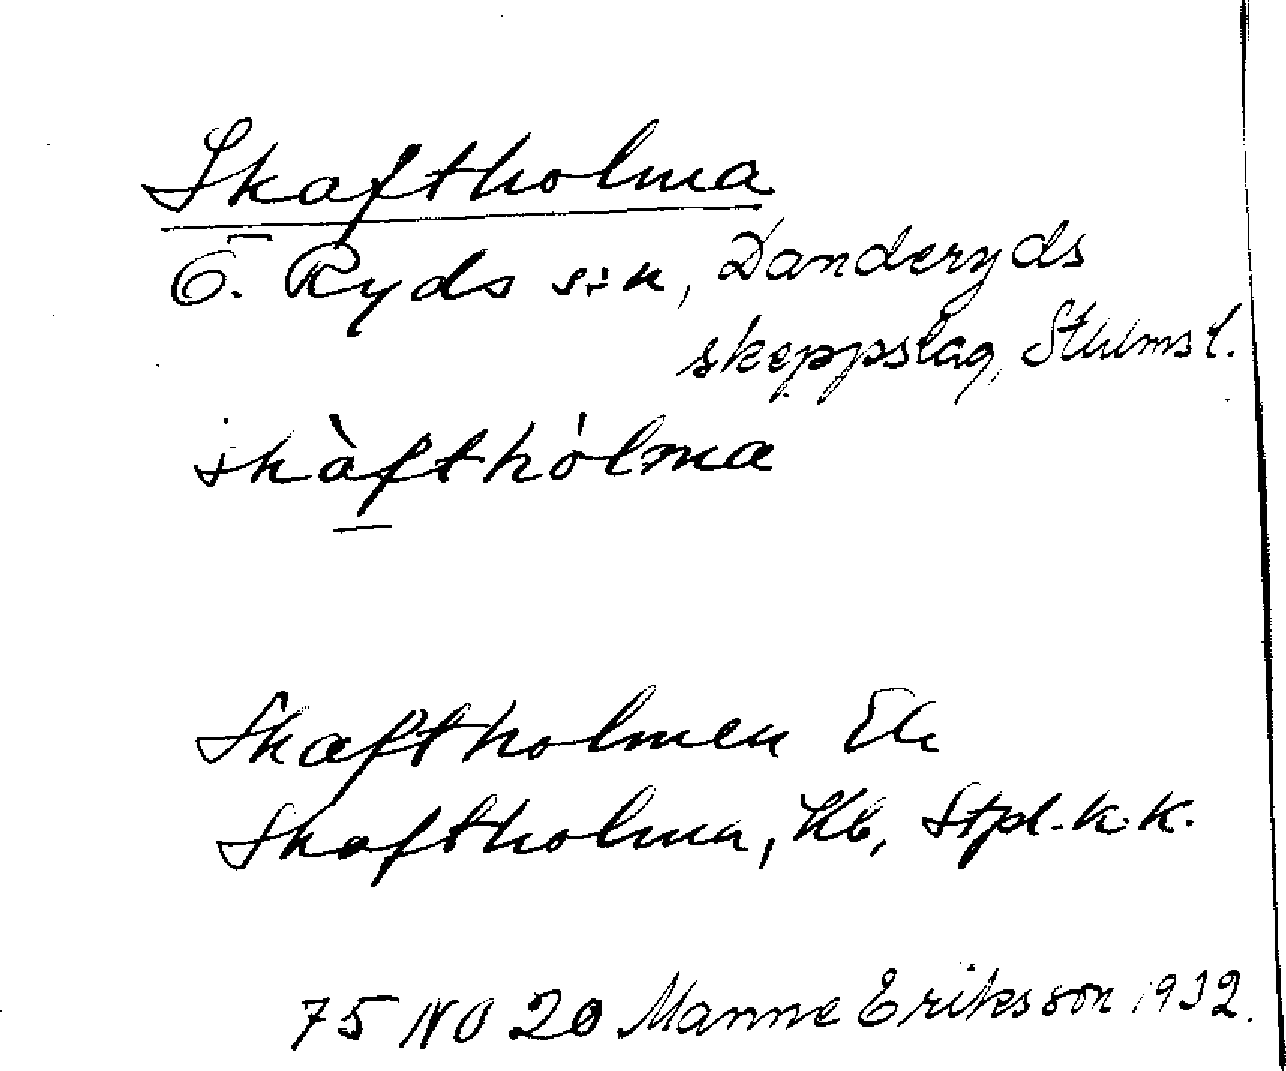 Skaftholma
Ö. Ryds s:n, Danderyds
skeppslag, Sthlms l.
skàfthólma
Skaftholmen Ek
Skaftholma, Hb, Stpl. k. k.
75 NO 20 Manne Eriksson 1932.